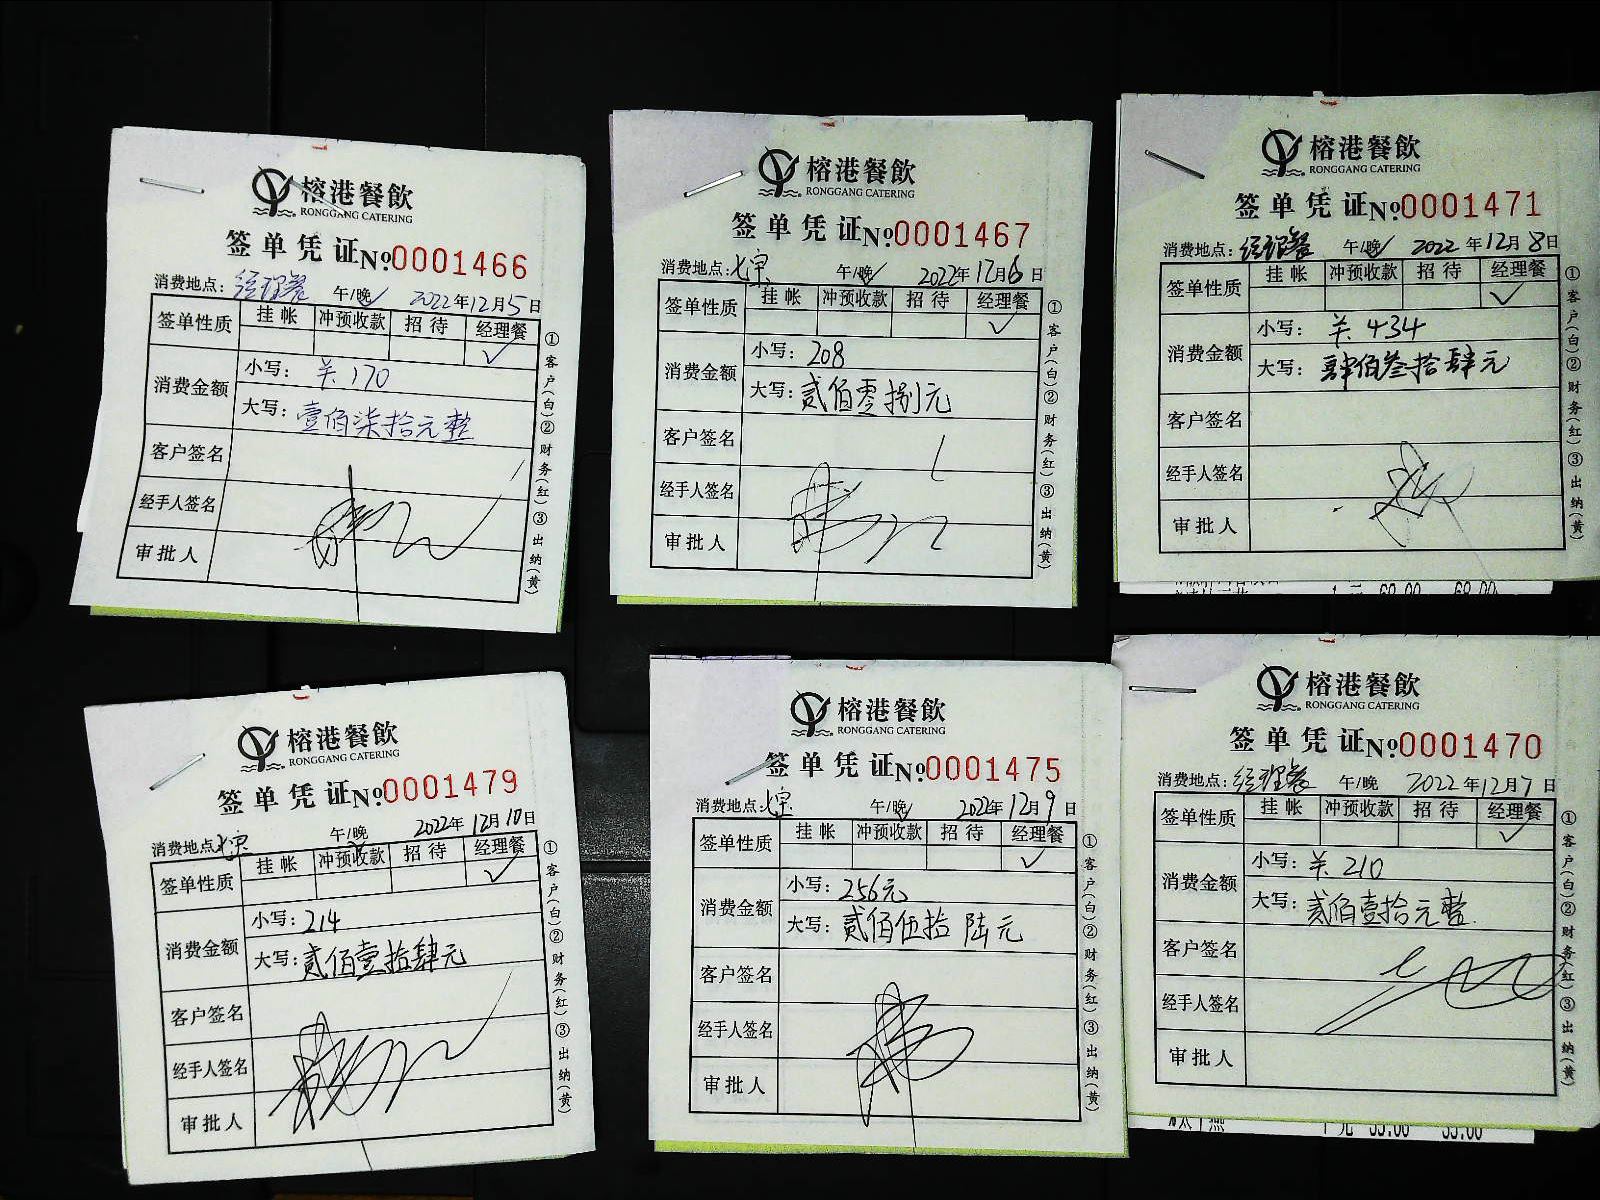 榕港餐飲
RONGGANG CATERING
签单凭证 №0001466
消费地点: 经理餐 午/晚 2022年12月5日
签单性质 挂帐 冲预收款 招待 经理餐
✓
消费金额 小写: 羊 170
大写: 壹佰柒拾元整
客户签名
经手人签名
审批人
①客户(白)②财务(红)③出纳(黄)
榕港餐飲
RONGGANG CATERING
签单凭证 №0001467
消费地点: 午/晚 2022年12月6日
签单性质 挂帐 冲预收款 招待 经理餐
✓
消费金额 小写: 208
大写: 贰佰零捌元
客户签名
经手人签名
审批人
①客户(白)②财务(红)③出纳(黄)
榕港餐飲
RONGGANG CATERING
签单凭证 №0001471
消费地点: 经理餐 午/晚 2022年12月8日
签单性质 挂帐 冲预收款 招待 经理餐
✓
消费金额 小写: 羊 434
大写: 肆佰叁拾肆元
客户签名
经手人签名
审批人
①客户(白)②财务(红)③出纳(黄)
榕港餐飲
RONGGANG CATERING
签单凭证 №0001479
消费地点 午/晚 2022年12月10日
签单性质 挂帐 冲预收款 招待 经理餐
✓
消费金额 小写: 214
大写: 贰佰壹拾肆元
客户签名
经手人签名
审批人
①客户(白)②财务(红)③出纳(黄)
榕港餐飲
RONGGANG CATERING
签单凭证 №0001475
消费地点: 午/晚 2022年12月9日
签单性质 挂帐 冲预收款 招待 经理餐
✓
消费金额 小写: 256元
大写: 贰佰伍拾陆元
客户签名
经手人签名
审批人
①客户(白)②财务(红)③出纳(黄)
榕港餐飲
RONGGANG CATERING
签单凭证 №0001470
消费地点: 经理餐 午/晚 2022年12月7日
签单性质 挂帐 冲预收款 招待 经理餐
✓
消费金额 小写: 羊 210
大写: 贰佰壹拾元整
客户签名
经手人签名
审批人
①客户(白)②财务(红)③出纳(黄)